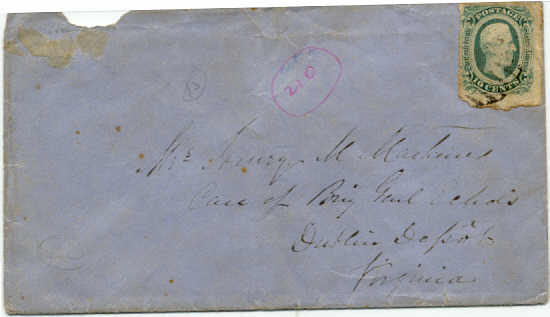 POSTAGE
10 CENTS
210
Mrs Henry M Mathews
Care of Brig Genl Echols
Dublin Depôt
Virginia